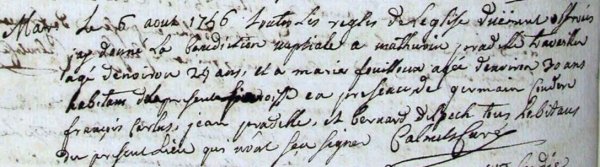 Mar. le 6 aout 1756 toutes les regles de l'eglise duement observées
jay donné la benediction nuptiale a mathurin pradelle travailleur
agé denviron 24 ans, et a marie fouilloux agée denviron 30 ans
habitans de la presente paroisse en presence de germain
françois Carlus, jean pradelle, et bernard delpech tous habitans
du present lieu qui n'ont sçu signer Curé